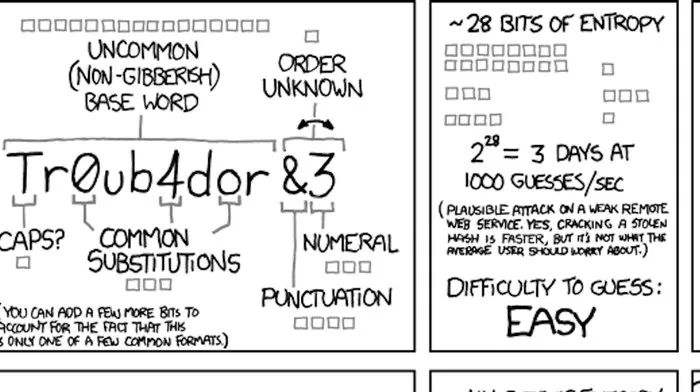 UNCOMMON
(NON-GIBBERISH)
BASE WORD
ORDER
UNKNOWN
Tr0ub4dor &3
CAPS?
COMMON
SUBSTITUTIONS
NUMERAL
PUNCTUATION
(YOU CAN ADD A FEW MORE BITS TO
ACCOUNT FOR THE FACT THAT THIS
IS ONLY ONE OF A FEW COMMON FORMATS.)
~28 BITS OF ENTROPY
2^28 = 3 DAYS AT
1000 GUESSES/SEC
(PLAUSIBLE ATTACK ON A WEAK REMOTE
WEB SERVICE. YES, CRACKING A STOLEN
HASH IS FASTER, BUT IT'S NOT WHAT THE
AVERAGE USER SHOULD WORRY ABOUT.)
DIFFICULTY TO GUESS:
EASY